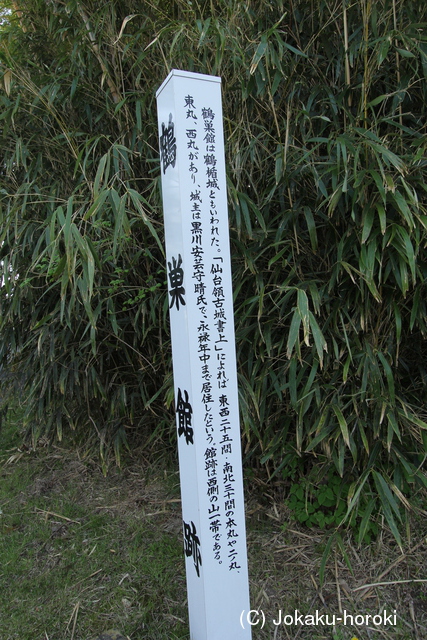 鶴巣館跡
鶴巣館は鶴楯城ともいわれた。「仙台領古城書上」によれば 東西二十五間・南北三十間の本丸や二ノ丸、
東丸、西丸があり、城主は黒川安芸守晴氏で、永禄年中まで居住したという。館跡は西側の山一帯である。
(C) Jokaku-horoki